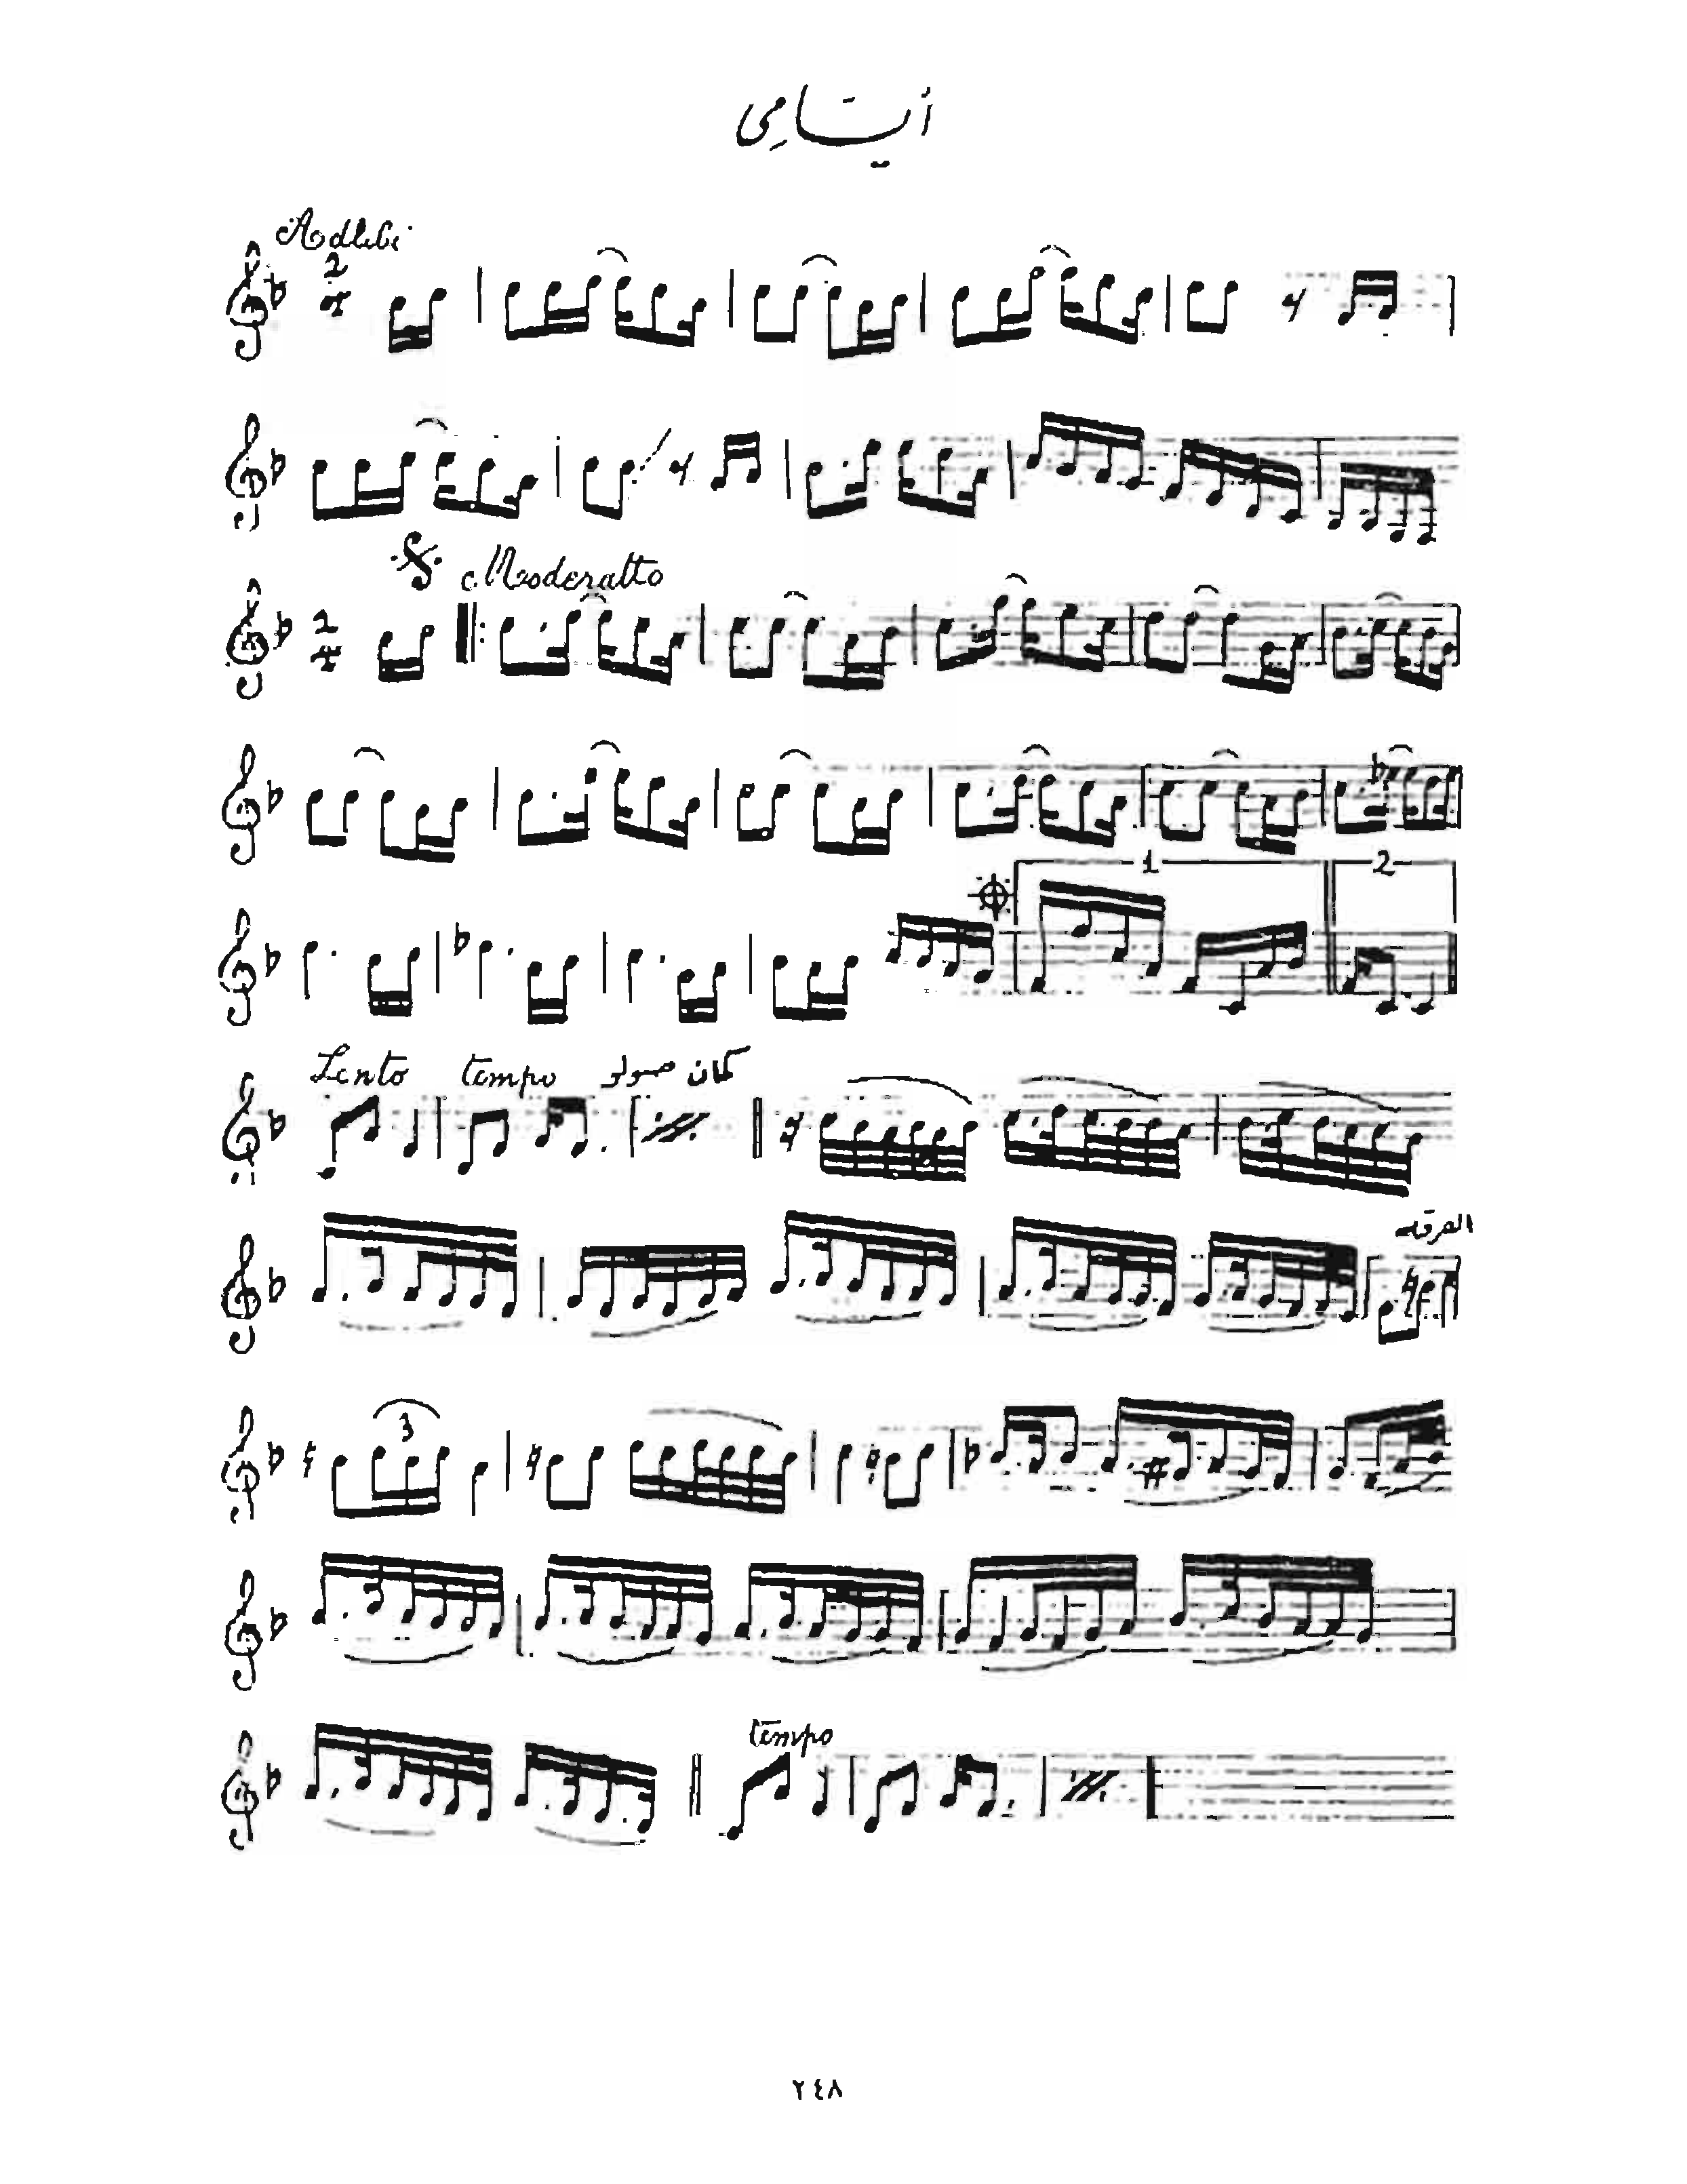 أيتامي
Adlibi
2
4
Moderatto
2
4
1
2
Lento tempo كمان صولو
الفرقة
3
tempo
٢٤٨